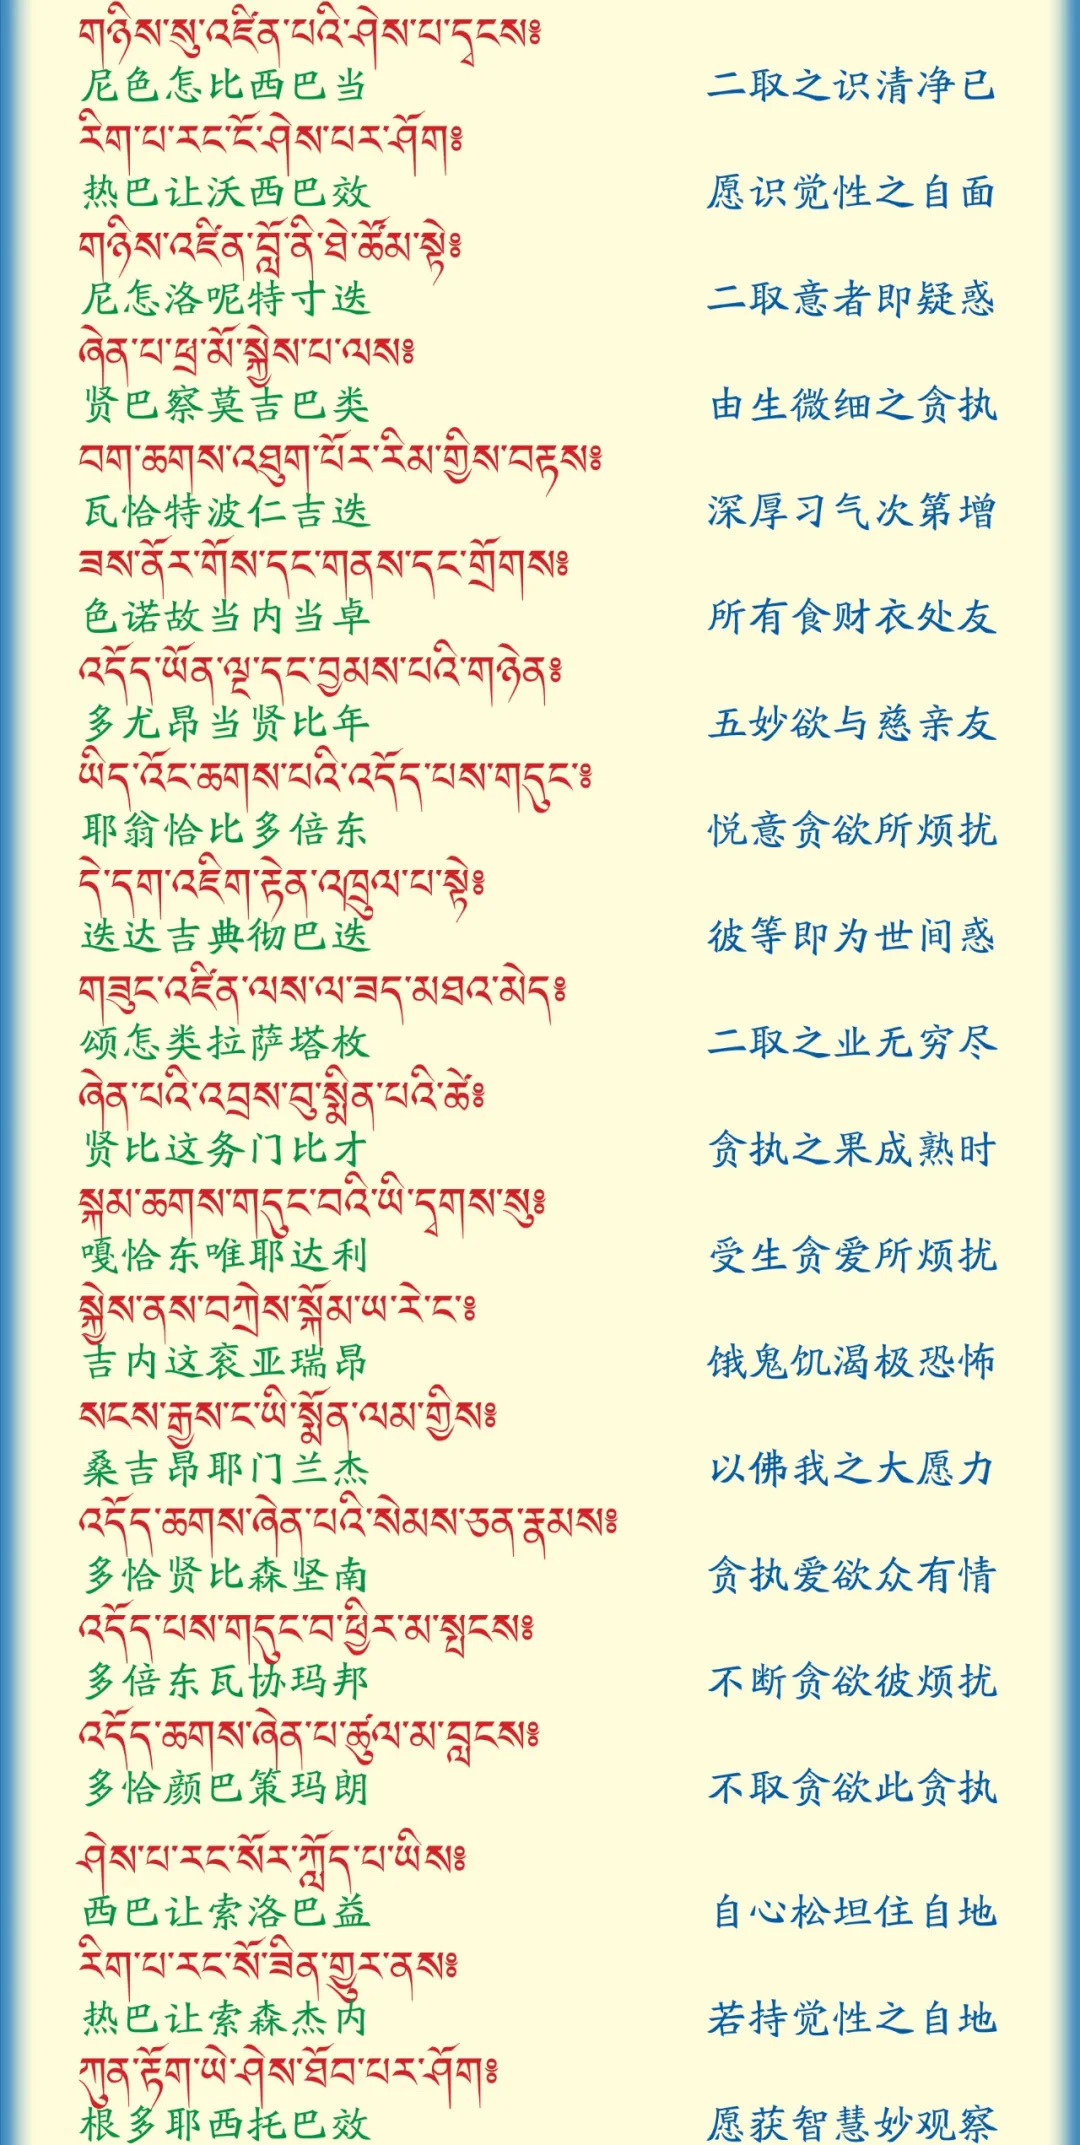 གཉིས་སུ་འཛིན་པའི་ཤེས་པ་དྭངས༔
尼色怎比西巴当 二取之识清净已
རིག་པ་རང་ངོ་ཤེས་པར་ཤོག༔
热巴让沃西巴效 愿识觉性之自面
གཉིས་འཛིན་བློ་ནི་ཐེ་ཚོམ་སྟེ༔
尼怎洛呢特寸迭 二取意者即疑惑
ཞེན་པ་ཕྲ་མོ་སྐྱེས་པ་ལས༔
贤巴察莫吉巴类 由生微细之贪执
བག་ཆགས་འཐུག་པོར་རིམ་གྱིས་བརྟས༔
瓦恰特波仁吉迭 深厚习气次第增
ཟས་ནོར་གོས་དང་གནས་དང་གྲོགས༔
色诺故当内当卓 所有食财衣处友
འདོད་ཡོན་ལྔ་དང་བྱམས་པའི་གཉེན༔
多尤昂当贤比年 五妙欲与慈亲友
ཡིད་འོང་ཆགས་པའི་འདོད་པས་གདུང་༔
耶翁恰比多倍东 悦意贪欲所烦扰
དེ་དག་འཇིག་རྟེན་འཁྲུལ་པ་སྟེ༔
迭达吉典彻巴迭 彼等即为世间惑
གཟུང་འཛིན་ལས་ལ་ཟད་མཐའ་མེད༔
颂怎类拉萨塔枚 二取之业无穷尽
ཞེན་པའི་འབྲས་བུ་སྨིན་པའི་ཚེ༔
贤比这务门比才 贪执之果成熟时
སྐམ་ཆགས་གདུང་བའི་ཡི་དྭགས་སུ༔
嘎恰东唯耶达利 受生贪爱所烦扰
སྐྱེས་ནས་བཀྲེས་སྐོམ་ཡ་རེ་ང་༔
吉内这衮亚瑞昂 饿鬼饥渴极恐怖
སངས་རྒྱས་ང་ཡི་སྨོན་ལམ་གྱིས༔
桑吉昂耶门兰杰 以佛我之大愿力
འདོད་ཆགས་ཞེན་པའི་སེམས་ཅན་རྣམས༔
多恰贤比森坚南 贪执爱欲众有情
འདོད་པས་གདུང་བ་ཕྱིར་མ་སྤངས༔
多倍东瓦协玛邦 不断贪欲彼烦扰
འདོད་ཆགས་ཞེན་པ་ཚུལ་མ་བླངས༔
多恰颜巴策玛朗 不取贪欲此贪执
ཤེས་པ་རང་སོར་ཀློད་པ་ཡིས༔
西巴让索洛巴益 自心松坦住自地
རིག་པ་རང་སོ་ཟིན་གྱུར་ནས༔
热巴让索森杰内 若持觉性之自地
ཀུན་རྟོག་ཡེ་ཤེས་ཐོབ་པར་ཤོག༔
根多耶西托巴效 愿获智慧妙观察